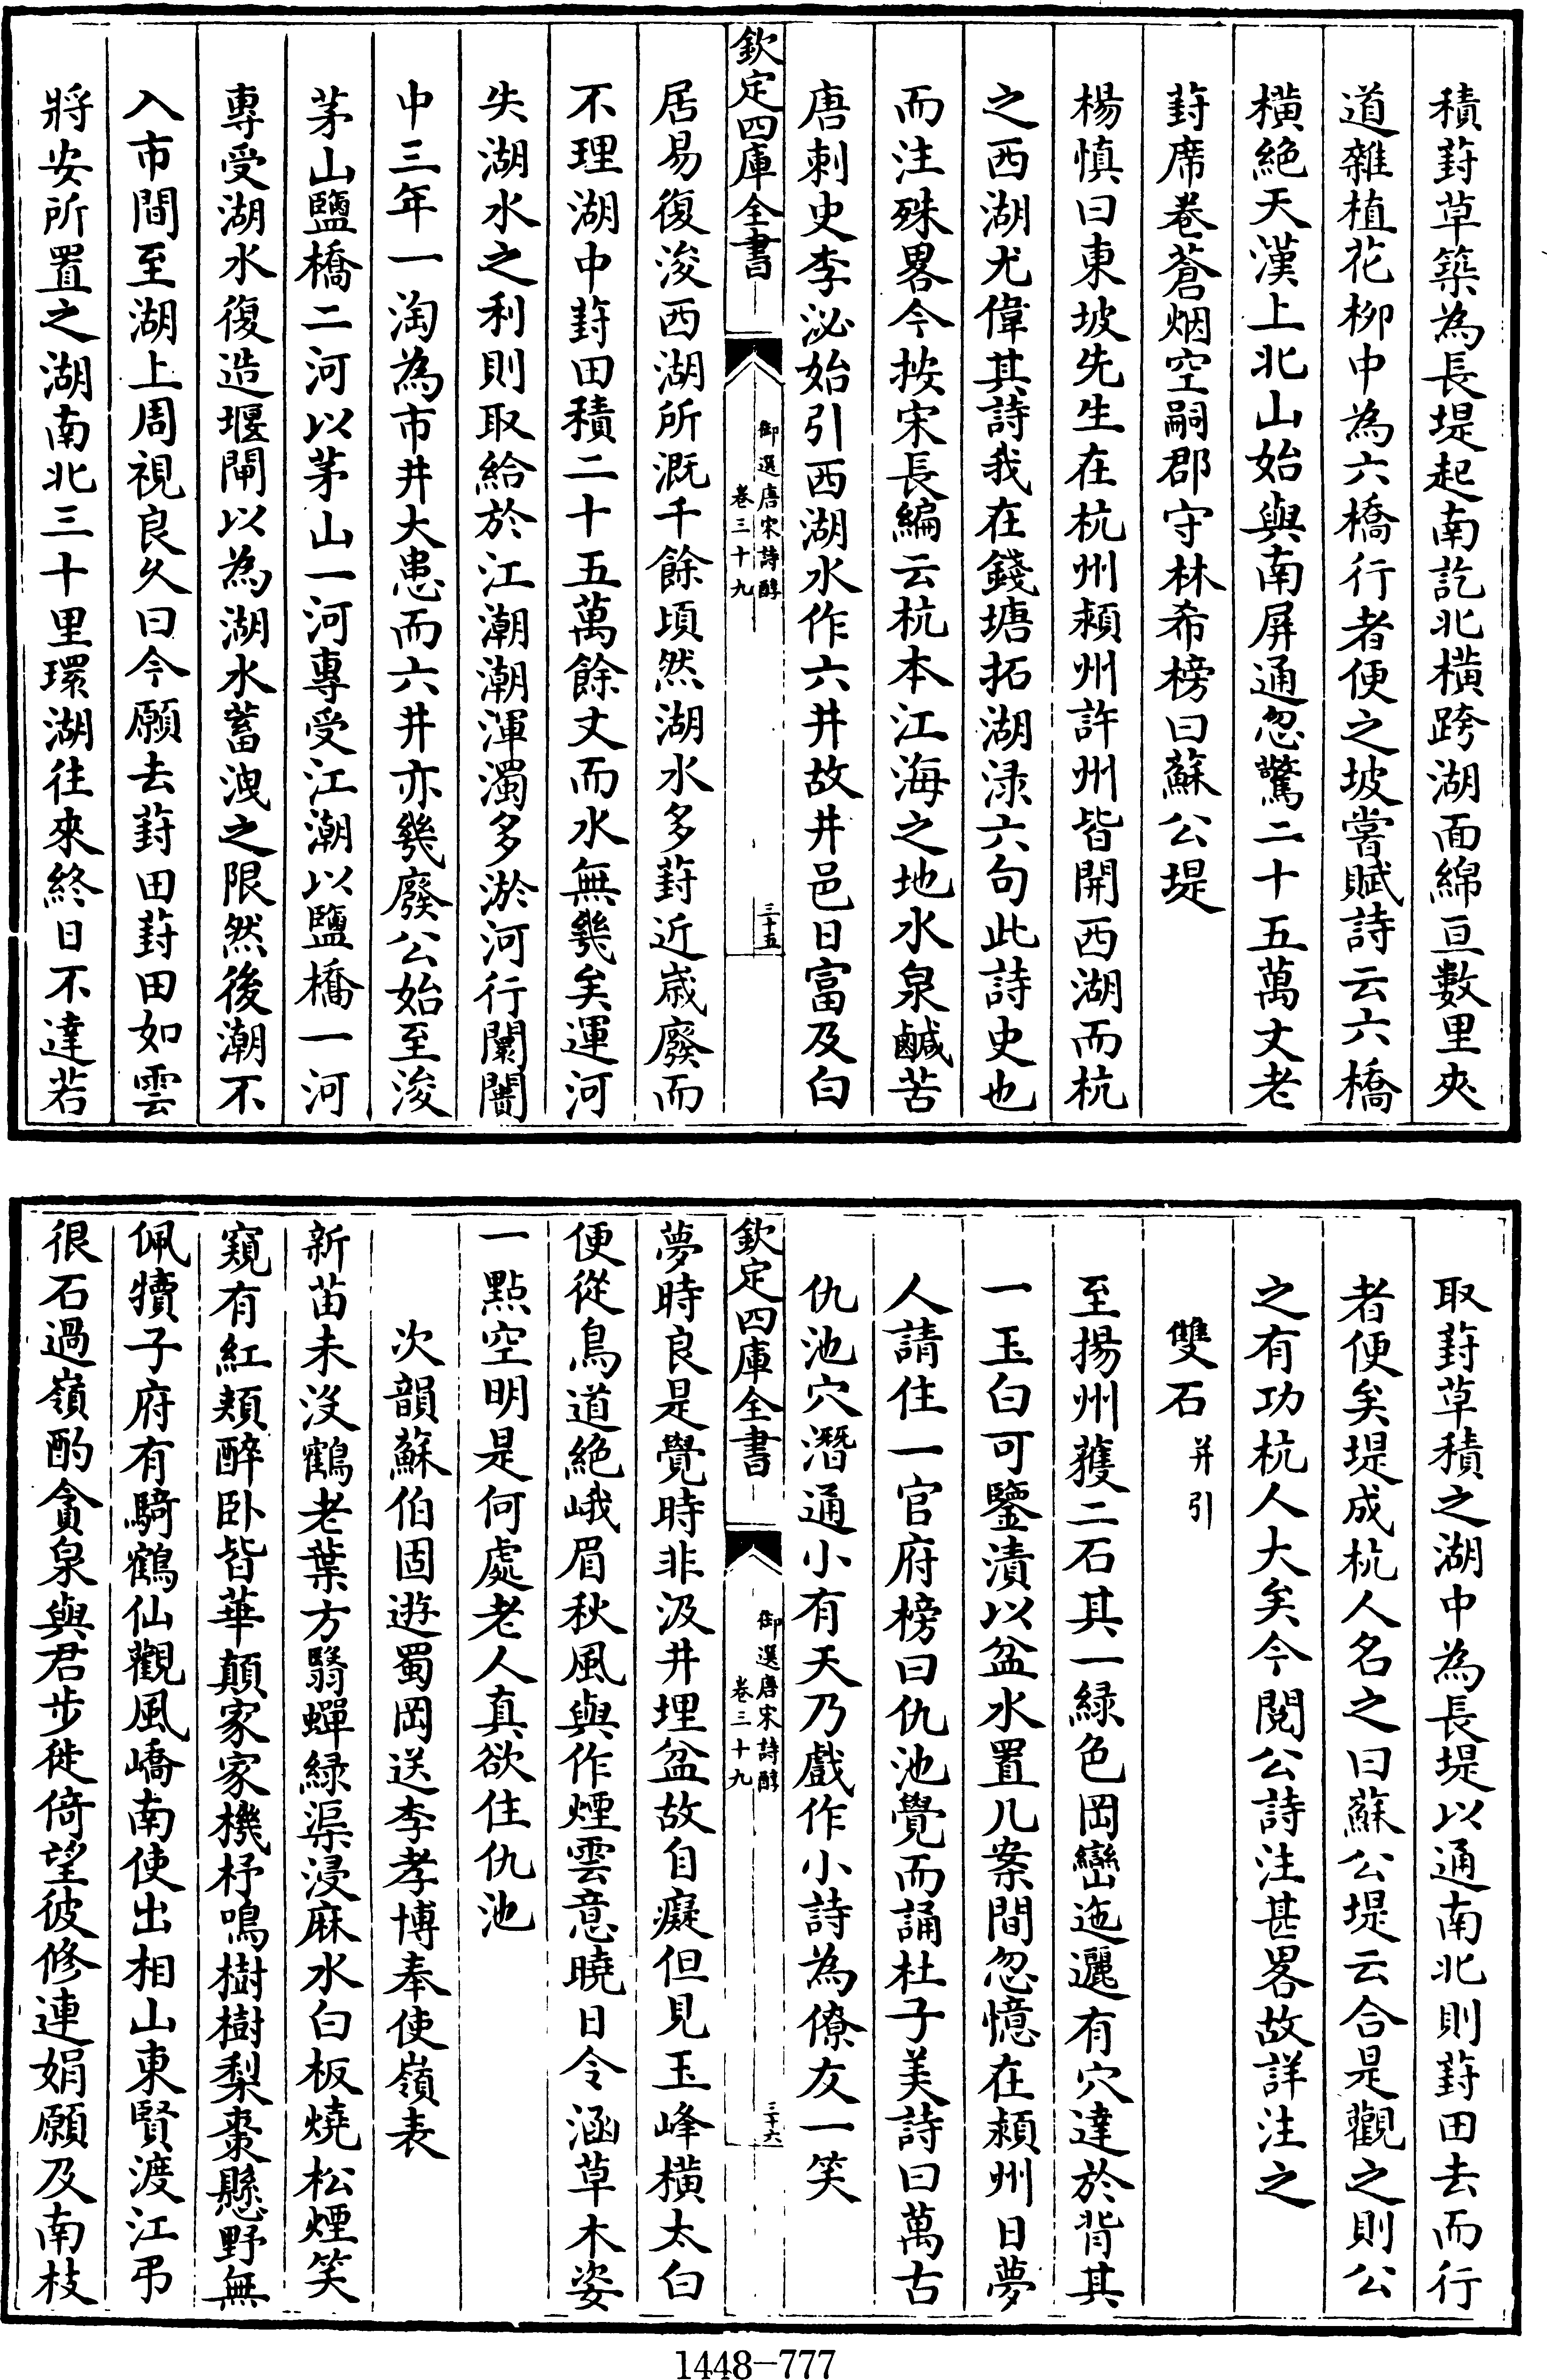 積葑草築為長堤起南訖北橫跨湖面綿亘數里夾
道雜植花柳中為六橋行者便之坡嘗賦詩云六橋
橫絶天漢上北山始與南屏通忽驚二十五萬丈老
葑席卷蒼烟空嗣郡守林希榜曰蘇公堤
楊慎曰東坡先生在杭州潁州許州皆開西湖而杭
之西湖尤偉其詩我在錢塘拓湖渌六句此詩史也
而注殊畧今按宋長編云杭本江海之地水泉鹹苦
唐刺史李泌始引西湖水作六井故井邑日富及白
欽定四庫全書
御選唐宋詩醇
卷三十九
三十五
居易復浚西湖所溉千餘頃然湖水多葑近嵗廢而
不理湖中葑田積二十五萬餘丈而水無幾矣運河
失湖水之利則取給於江潮潮渾濁多淤河行闤闠
中三年一淘為市井大患而六井亦幾廢公始至浚
茅山鹽橋二河以茅山一河專受江潮以鹽橋一河
專受湖水復造堰閘以為湖水蓄洩之限然後潮不
入市間至湖上周視良久曰今願去葑田葑田如雲
將安所置之湖南北三十里環湖往來終日不達若
取葑草積之湖中為長堤以通南北則葑田去而行
者便矣堤成杭人名之曰蘇公堤云合是觀之則公
之有功杭人大矣今閱公詩注甚畧故詳注之
雙石并引
至揚州獲二石其一緑色岡巒迤邐有穴達於背其
一玉白可鑒漬以盆水置几案間忽憶在潁州日夢
人請住一官府榜曰仇池覺而誦杜子美詩曰萬古
仇池穴潛通小有天乃戲作小詩為僚友一笑
欽定四庫全書
御選唐宋詩醇
卷三十九
三十六
夢時良是覺時非汲井埋盆故自癡但見玉峰橫太白
便從鳥道絶峨眉秋風與作煙雲意曉日令涵草木姿
一點空明是何處老人真欲住仇池
次韻蘇伯固遊蜀岡送李孝博奉使嶺表
新苗未没鶴老葉方翳蟬緑渠浸麻水白板燒松煙笑
窺有紅頰醉卧皆華顛家家機杼鳴樹樹梨棗懸野無
佩犢子府有騎鶴仙觀風嶠南使出相山東賢渡江弔
很石過嶺酌貪泉與君步徙倚望彼修連娟願及南枝
1448-777